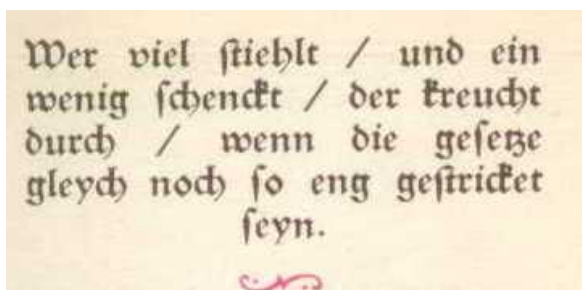 Wer viel ſtiehlt / und ein
wenig ſchenckt / der kreucht
durch / wenn die geſetze
gleych noch ſo eng geſtricket
ſeyn.